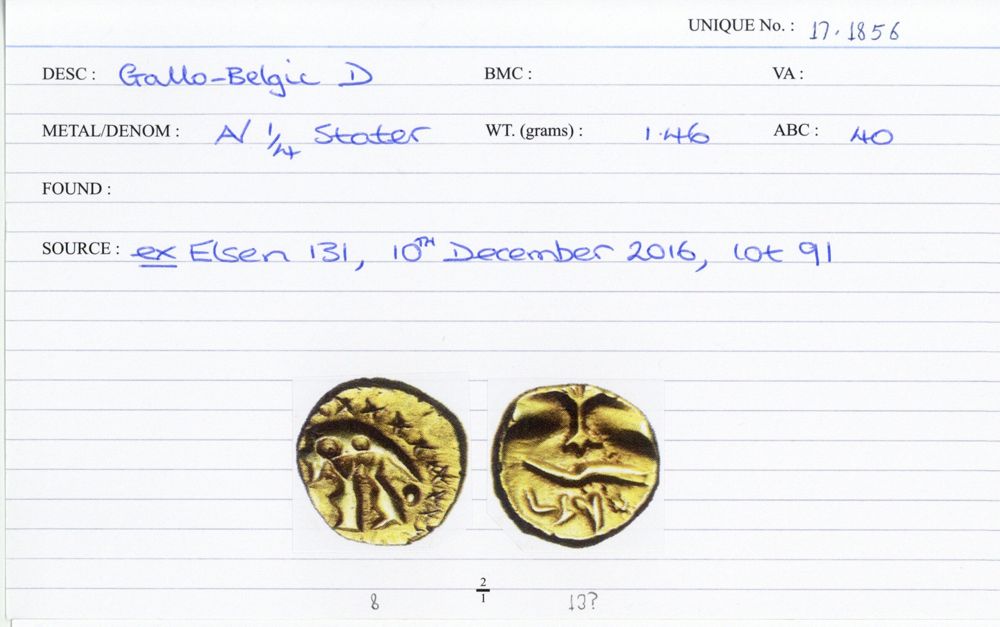 UNIQUE No. : 17.1856
DESC : Gallo-Belgic D BMC : VA :
METAL/DENOM : A/ 1/4 Stater WT. (grams) : 1.46 ABC : 40
FOUND :
SOURCE : ex Elsen 131, 10TH December 2016, lot 91
2
1
8 13?